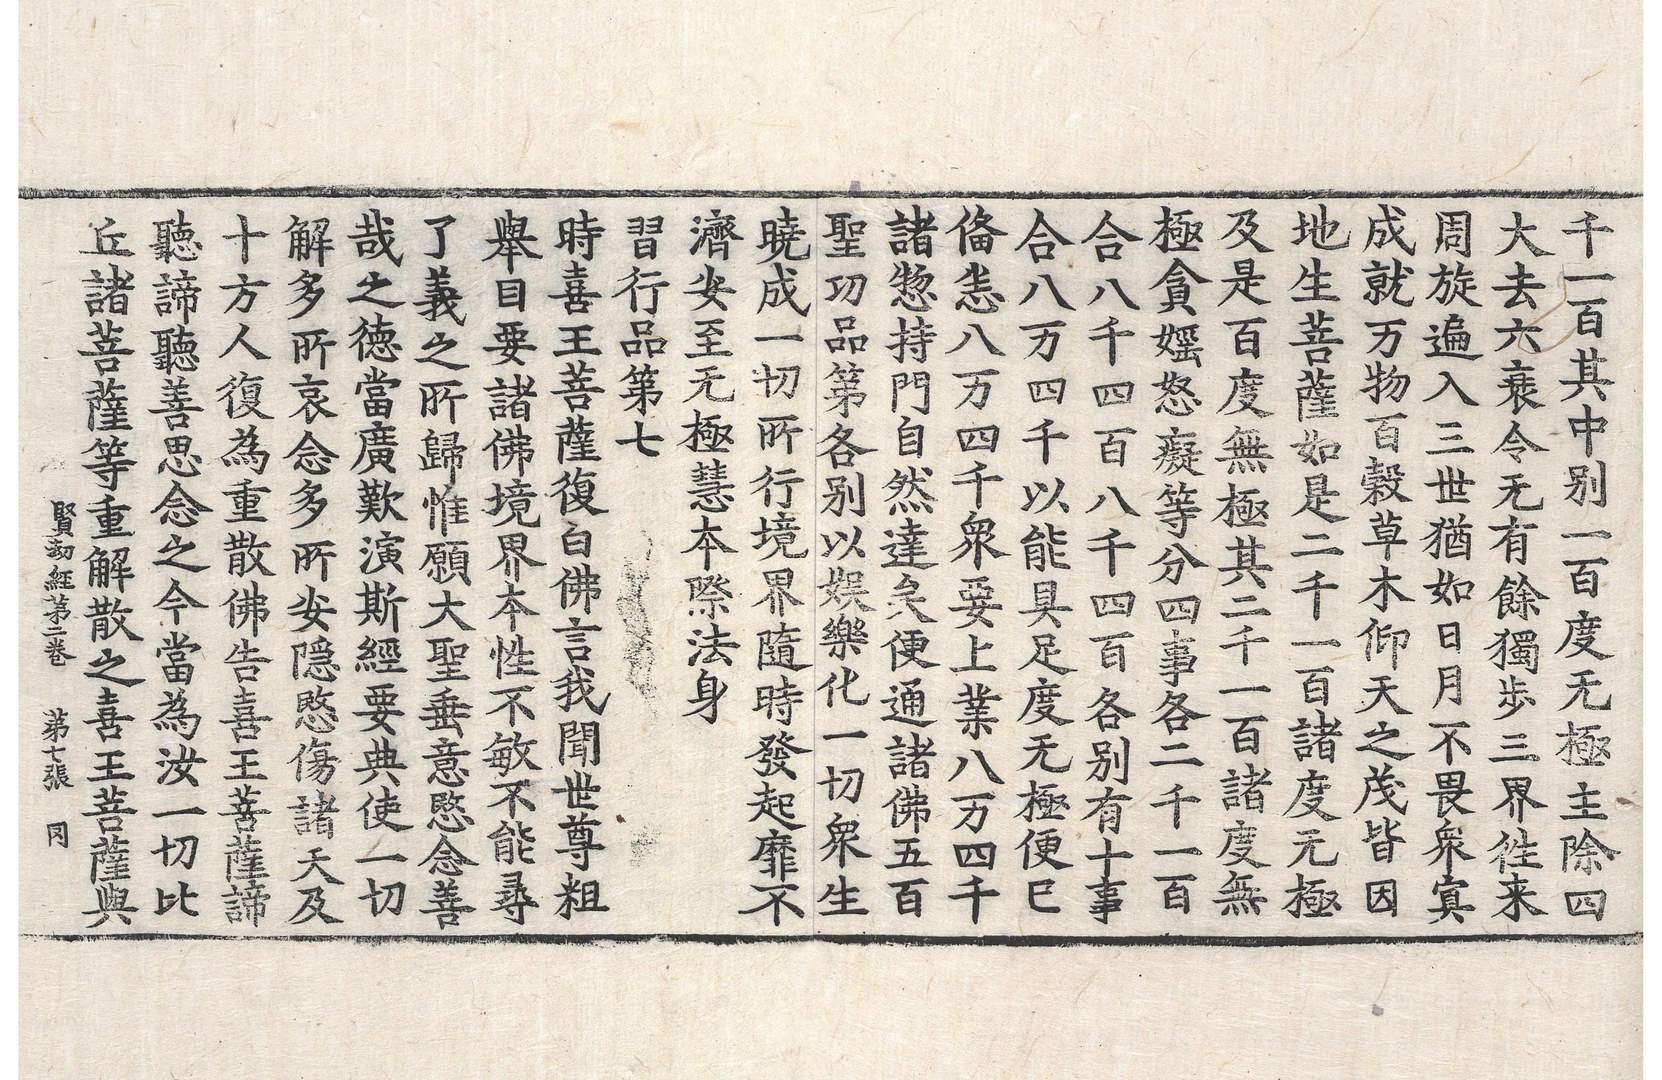 千一百其中别一百度无極主除四
大去六衰令无有餘獨步三界徃来
周旋遍入三世猶如日月不畏衆寘
成就万物百穀草木仰天之茂皆因
地生菩薩如是二千一百諸度无極
及是百度無極其二千一百諸度無
極貪婬怒癡等分四事各二千一百
合八千四百八千四百各别有十事
合八万四千以能具足度无極便已
俻恚八万四千衆要上業八万四千
諸惣持門自然達矣便通諸佛五百
聖功品第各别以娱樂化一切衆生
曉成一切所行境界隨時發起靡不
濟安至无極慧本際法身
習行品第七
時喜王菩薩復白佛言我聞世尊粗
舉目要諸佛境界本性不敏不能尋
了義之所歸惟願大聖垂意愍念善
哉之德當廣歎演斯經要典使一切
解多所哀念多所安隱愍傷諸天及
十方人復為重散佛告喜王菩薩諦
聽諦聽善思念之今當為汝一切比
丘諸菩薩等重解散之喜王菩薩與
賢劫經第二卷 第七張 冈